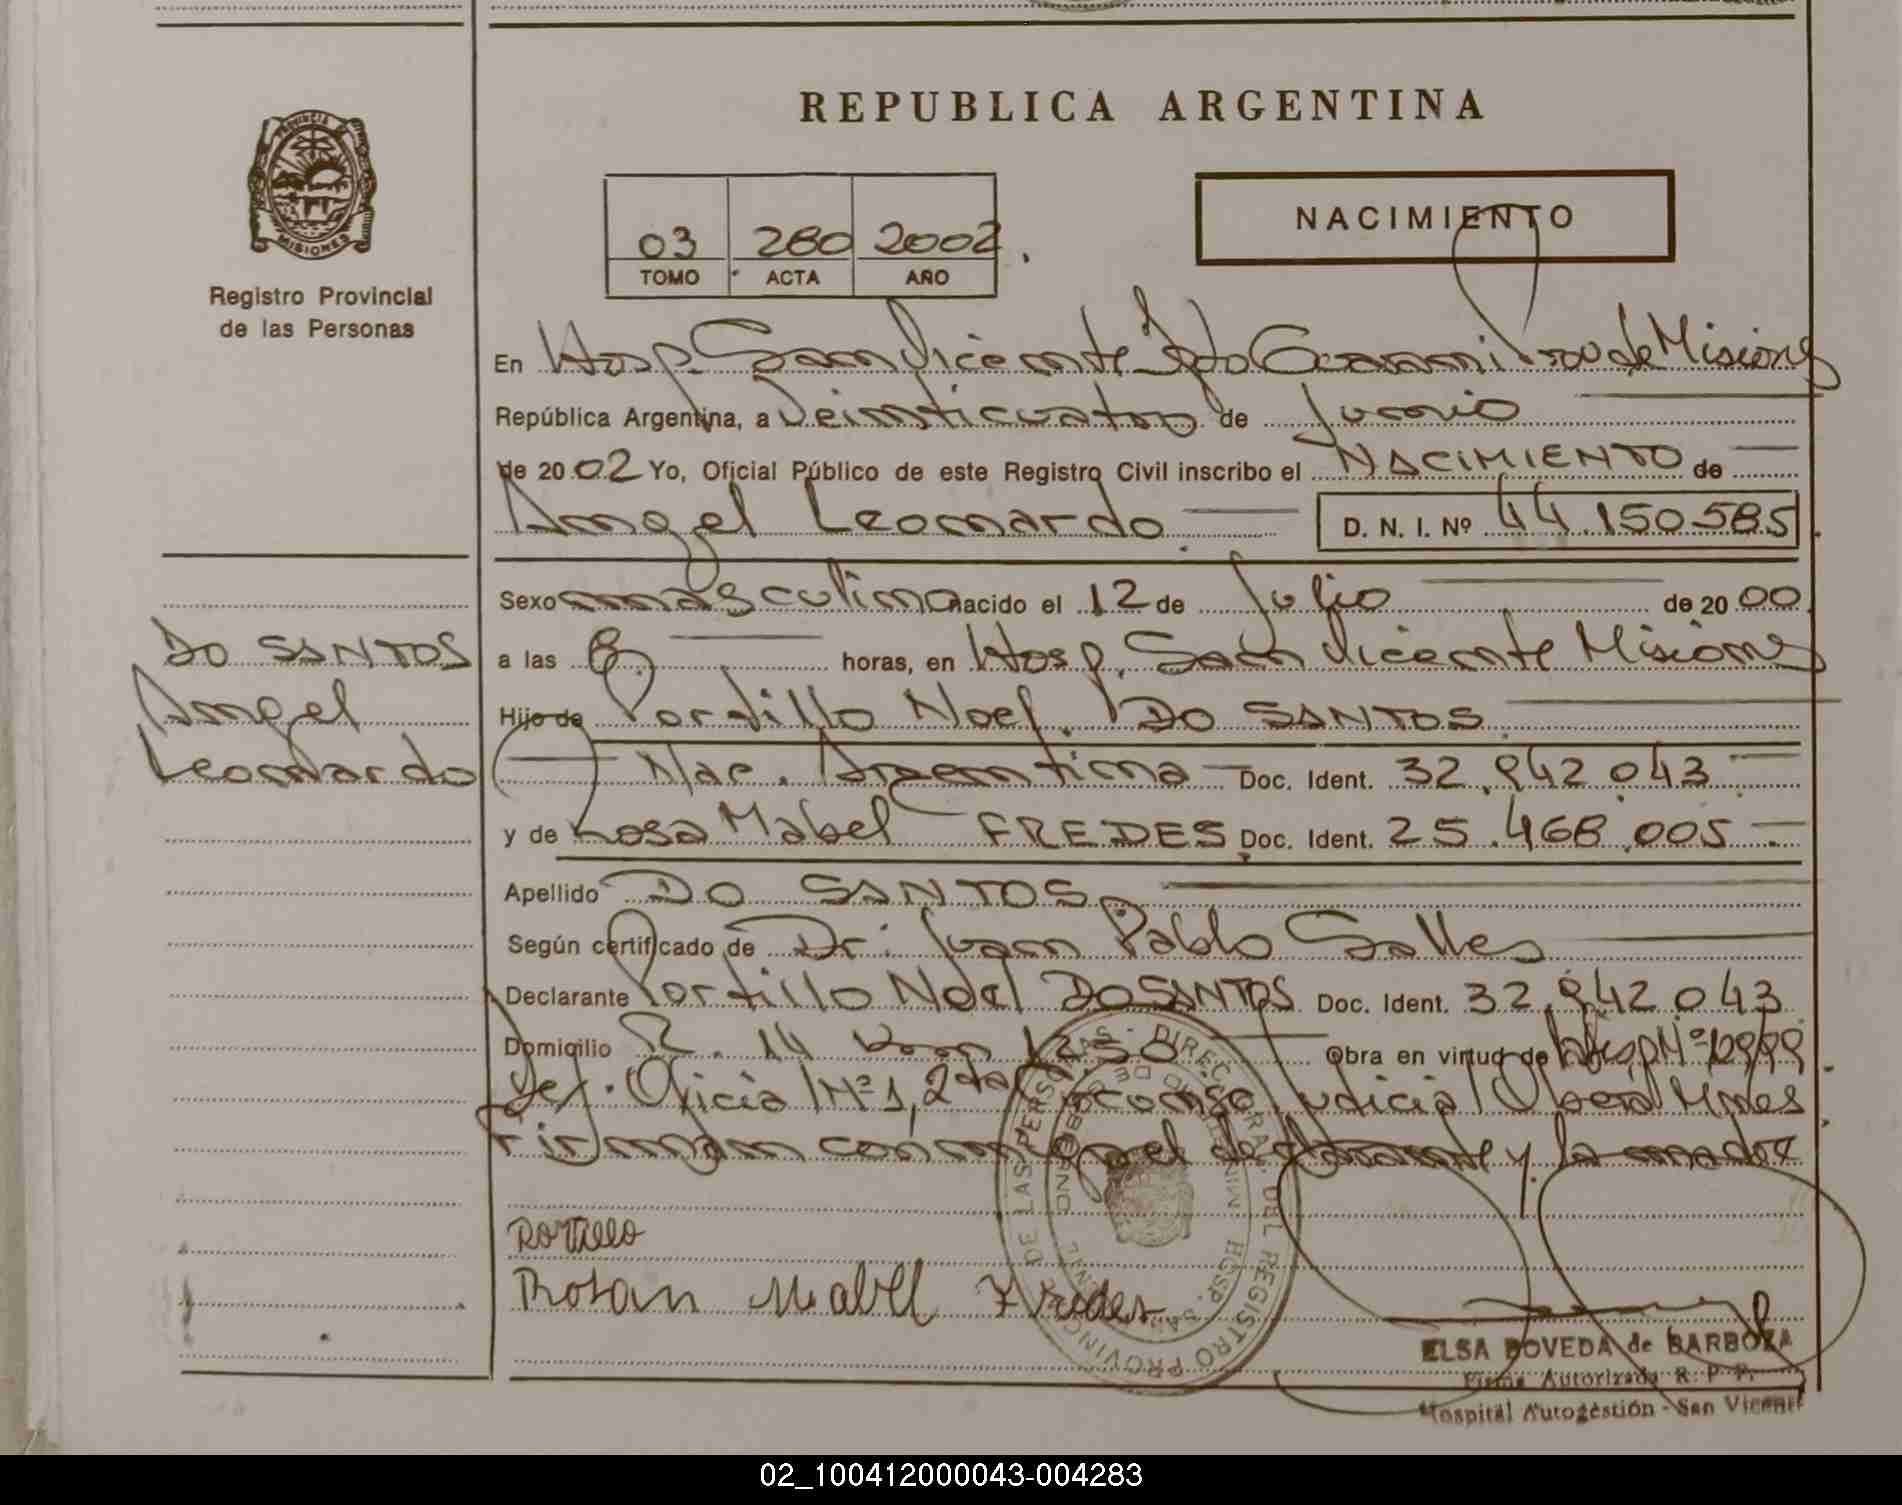 REPUBLICA ARGENTINA
PROVINCIA DE
MISIONES
Registro Provincial
de las Personas
03 280 2002
TOMO ACTA AÑO
NACIMIENTO
En Hosp. San Vicente Dpto Guarani Prov de Misiones
República Argentina, a Veinticuatro de Junio
de 20 02 Yo, Oficial Público de este Registro Civil inscribo el NACIMIENTO de
Angel Leonardo D. N. I. Nº 44.150.585
Sexo masculino nacido el 12 de Julio de 20 00
DO SANTOS
Angel
Leonardo
a las 8. horas, en Hosp. San Vicente Misiones
Hijo de Portillo Noel DO SANTOS
Nac. Argentina Doc. Ident. 32.942.043
y de Rosa Mabel FREDES Doc. Ident. 25.468.005
Apellido DO SANTOS
Según certificado de Dr. Juan Pablo Salles
Declarante Portillo Noel DO SANTOS Doc. Ident. 32.942.043
Domicilio R. 14 Km 1250 Obra en virtud de
Def. Oficial Nº 1, 2da Judicial Oberá Mnes
Firman conmigo el declarante y la madre
Portillo
Rosan Mabel Fredes
DIRECCION GENERAL DEL REGISTRO PROVINCIAL DE LAS PERSONAS
ELSA BOVEDA de BARBOZA
Firma Autorizada R. P. P.
Hospital Autogestión - San Vicente
02_100412000043-004283